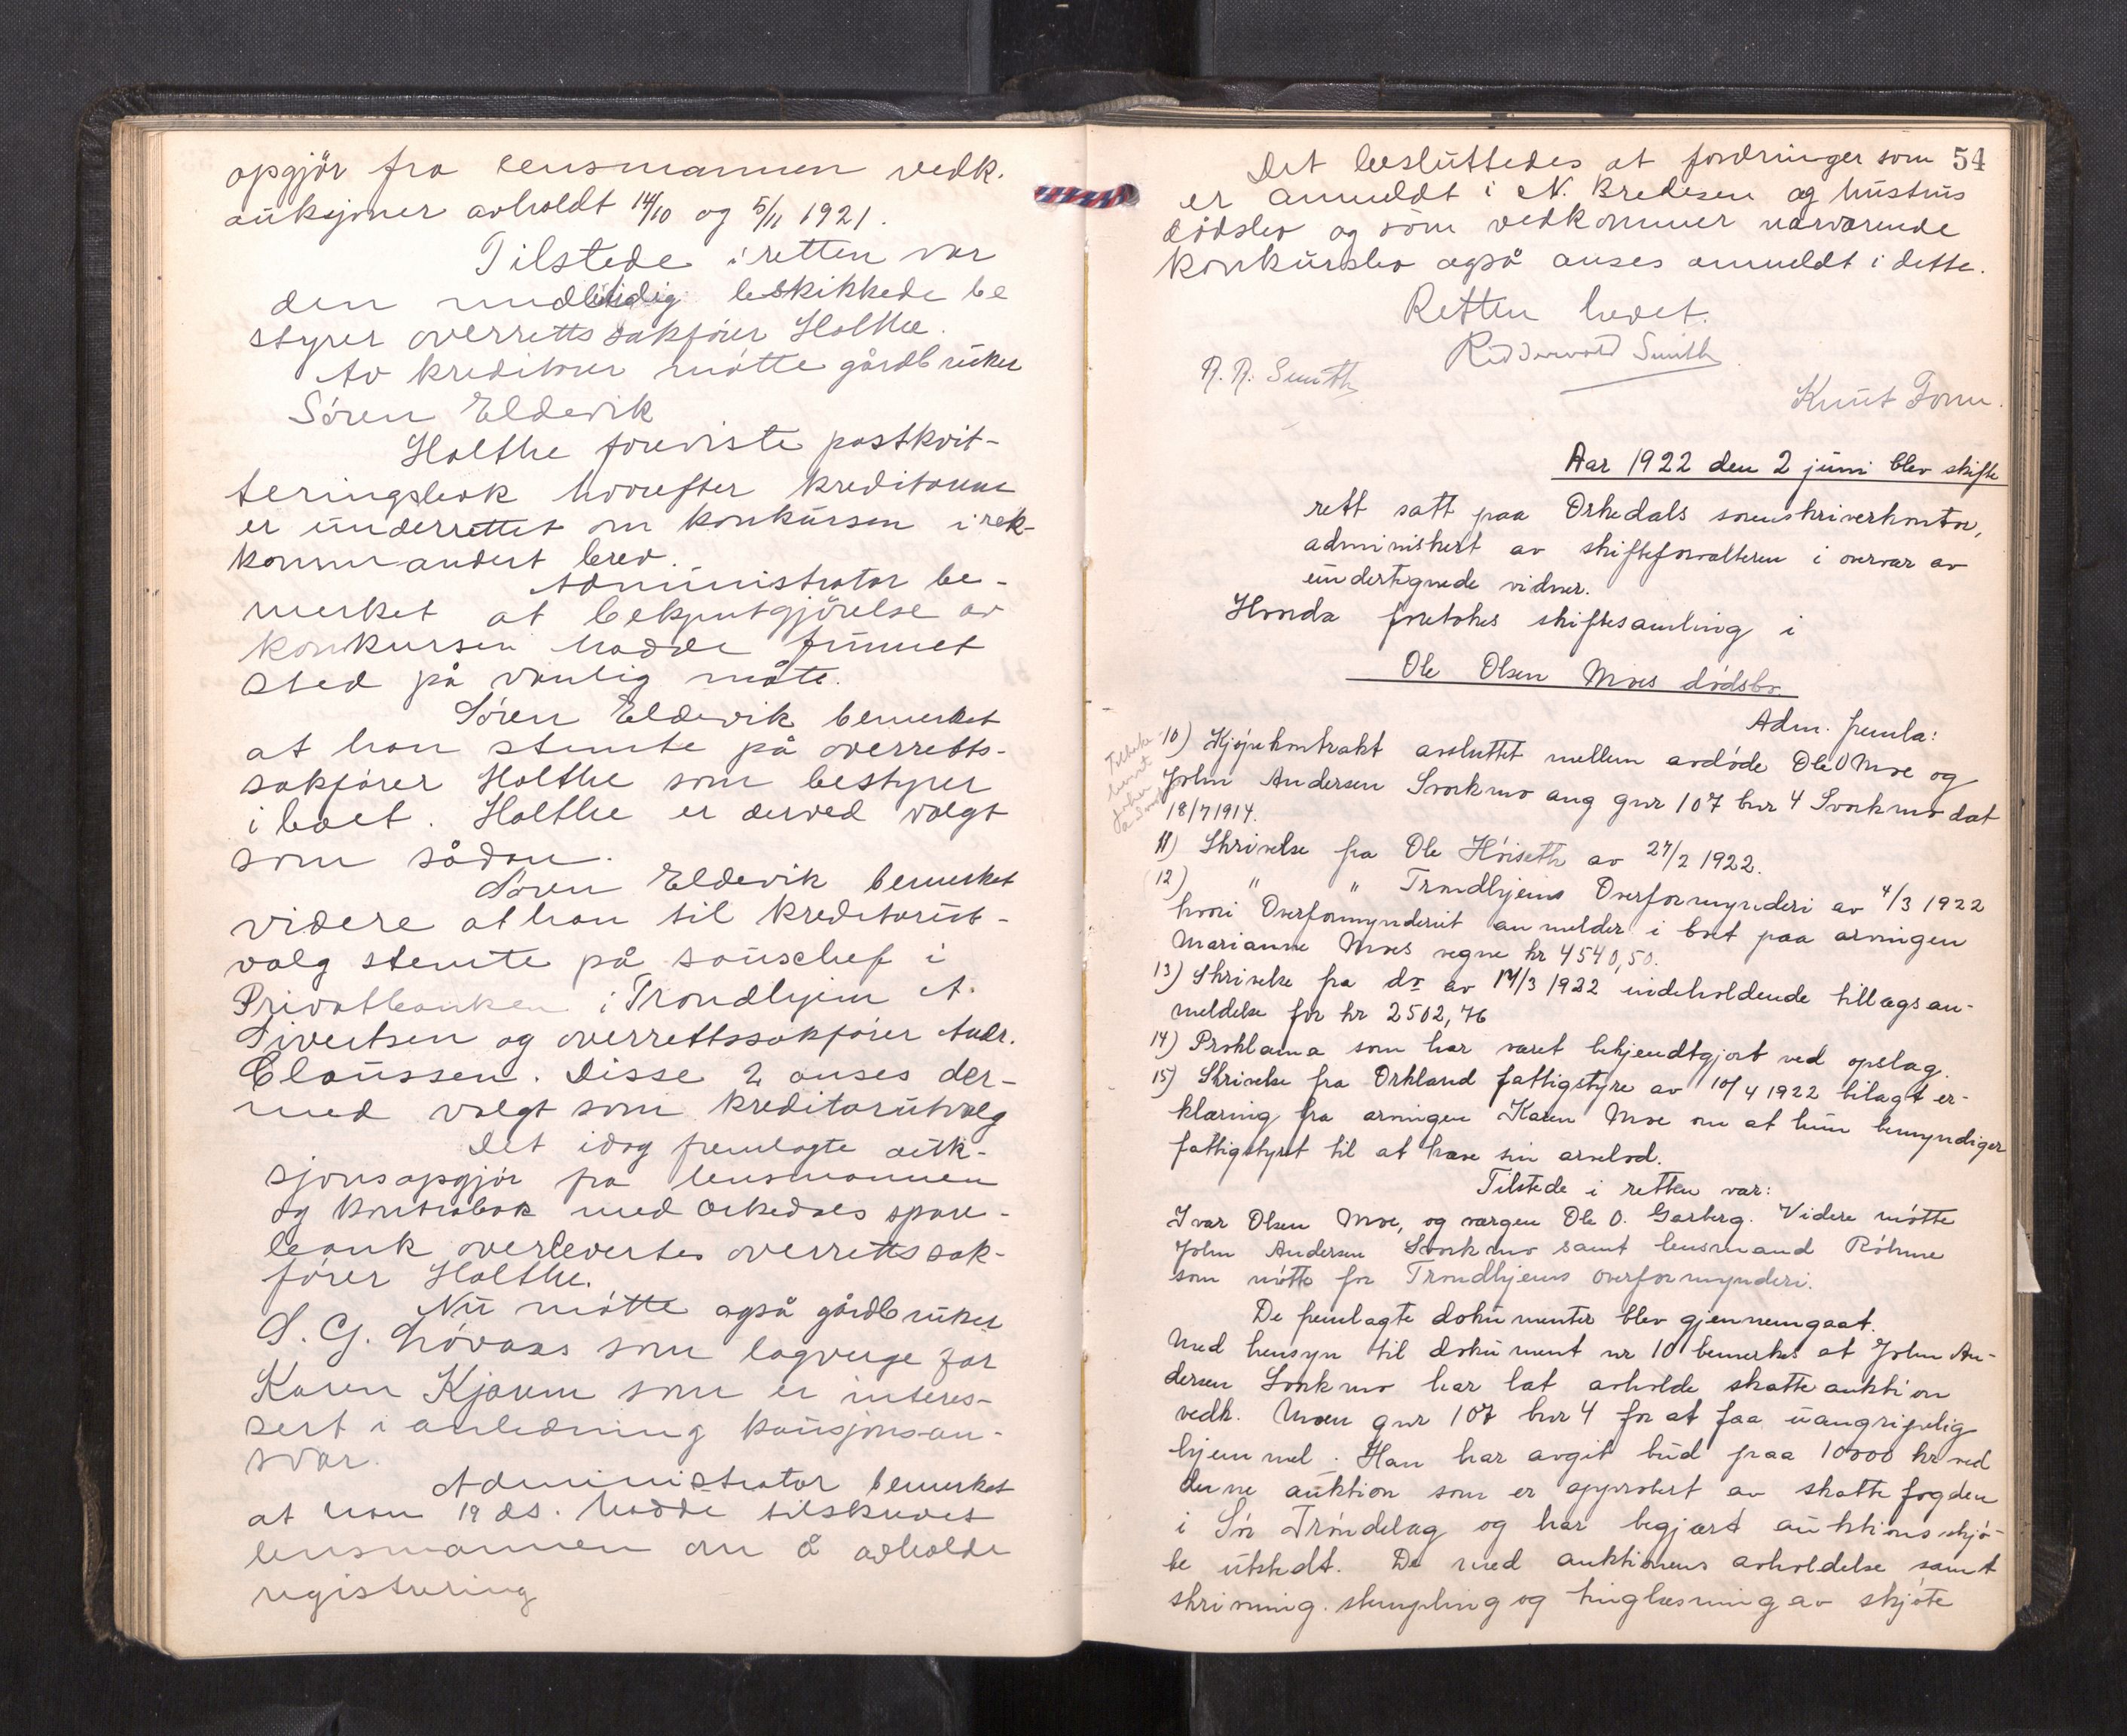 opgjör fra lensmannen vedk.
auksjoner avholdt 14/10 og 5/11 1921.
Tilstede i retten var
den midlertidig beskikkede be
styrer overrettssakfører Holthe.
Av kreditorer møtte gårdbruker
Sören Eldevik
Holthe foreviste postkvit-
teringsbok hvorefter kreditorene
er underrettet om konkursen i rek-
kommandert brev.
Administrator be-
merket at bekjentgjörelse av
konkursen hadde funnet
sted på vanlig måte.
Sören Eldevik bemerket
at han stemte på overretts-
sakfører Holthe som bestyrer
i boet. Holthe er derved valgt
som sådan.
Sören Eldevik bemerket
videre at han til kreditorut-
valg stemte på souschef i
Privatbanken i Trondhjem A.
Sivertsen og overrettssakfører Andr.
Claussen. Disse 2 anses der-
med valgt som kreditorutvalg
Det idag fremlagte auk-
sjonsopgjör fra lensmannen
og kontrabok med Orkedals spare-
bank overlevertes overrettssak-
fører Holthe.
Nu møtte også gårdbruker
S. G. Løvaas som lagverge for
Karen Kjøren som er interes-
sert i anledning kausjonsan-
svar.
Administrator bemerket
at han 19 ds. hadde tilskrevet
lensmannen om å avholde
registrering
54
Det besluttedes at fordringer som
er anmeldt i N. Bredesen og hustrus
dödsbo og som vedkommer nærværende
konkursbo også anses anmeldt i dette.
Retten hevet.
Ridderwold Smith
R. R. Smith
Knut Tonn.
Aar 1922 den 2 juni blev skifte
rett satt paa Orkedals sorenskriverkontor,
administrert av skifteforvalteren i overvær av
undertegnede vidner.
Hvorda foretokes skiftesamling i
Ole Olsen Moes dødsbo
Adm. fremla:
Tilbake
levert
John
Anders
10) Kjøpekontrakt avsluttet mellem avdøde Ole O Moe og
John Andersen Svorkmo ang gnr 107 bnr 4 Svorkmo dat
18/7 1914.
11) Skrivelse fra Ole Høiseth av 27/2 1922.
12) " " Trondhjems Overformynderi av 4/3 1922
hvori Overformynderiet anmelder i boet paa arvingen
Marianne Moes vegne kr 4540,50.
13) Skrivelse fra do av 14/3 1922 indeholdende tillægsan-
meldelse for kr 2502,76
14) Proklama som har været bekjendtgjort ved opslag.
15) Skrivelse fra Orkland fattigstyre av 10/4 1922 bilagt er-
klæring fra arvingen Karen Moe om at hun bemyndiger
fattigstyret til at hæve sin arvelod.
Tilstede i retten var:
Ivar Olsen Moe, og værgen Ole O. Garberg. Videre møtte
John Andersen Svorkmo samt lensmand Röhme
som møtte for Trondhjems overformynderi.
De fremlagte dokumenter blev gjennemgaat.
Med hensyn til dokument nr 10 bemerkes at John An-
dersen Svorkmo har lat avholde skatteauktion
vedk. Moen gnr 107 bnr 4 for at faa uangripelig
hjemmel. Han har avgit bud paa 10000 kr ved
denne auktion som er approbert av skattefogden
i Sör Tröndelag og har begjært auktionsskjö-
te utstedt. De med auktionens avholdelse samt
skrivning, stempling og tinglæsning av skjöte